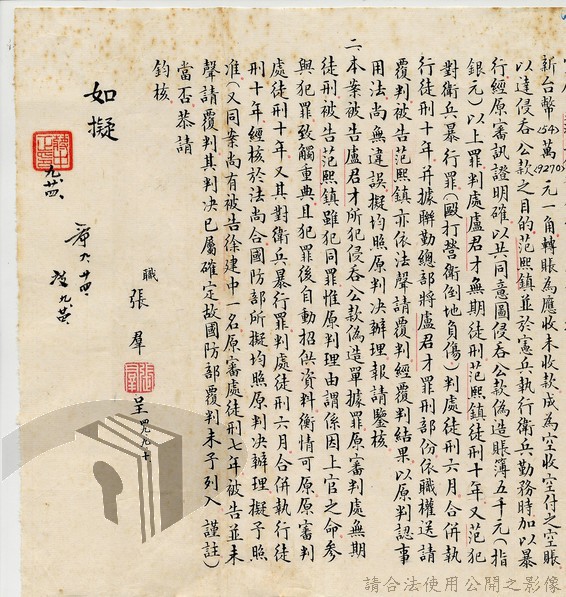 新台幣154萬(9270)元一角轉賬為應收未收款成為空收空付之空賬
以達侵吞公款之目的范熙鎮並於憲兵執行衛兵勤務時加以暴
行經原審訊證明確以共同意圖侵吞公款偽造賬簿五千元(指
銀元)以上罪判處盧君才無期徒刑范熙鎮徒刑十年又范犯
對衛兵暴行罪(毆打營衛倒地負傷)判處徒刑六月合併執
行徒刑十年并據聯勤總部將盧君才罪刑部份依職權送請
覆判被告范熙鎮亦依法聲請覆判經覆判結果以原判認事
用法尚無違誤擬均照原判决辦理報請鑒核
二、本案被告盧君才所犯侵吞公款偽造單據罪原審判處無期
徒刑被告范熙鎮雖犯同罪惟原判理由謂係因上官之命參
與犯罪致觸重典且犯罪後自動招供資料衡情可原原審判
處徒刑十年又其對衛兵暴行罪判處徒刑六月合併執行徒
刑十年經核於法尚合國防部所擬均照原判决辦理擬予照
准(又同案尚有被告徐建中一名原審處徒刑七年被告並未
聲請覆判其判决已屬確定故國防部覆判未予列入謹註)
當否恭請
鈞核
職張羣呈 四九、九、十
張羣
如擬
蔣中正印
九、廿四
請合法使用公開之影像